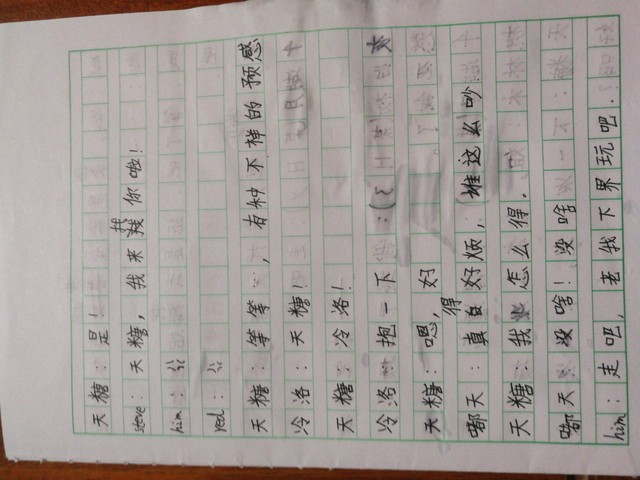 天糖：是！
steve：天糖，我来找你啦！
him：……
red：……
天糖：等等…，有种不祥的预感
冷洛：天糖！
天糖：冷洛！
冷洛：抱一下
天糖：嗯，好
嘟天：真得好烦，谁这么吵
天糖：我怎么得。
嘟天：没啥！没啥
him：走吧，去我下界玩吧.